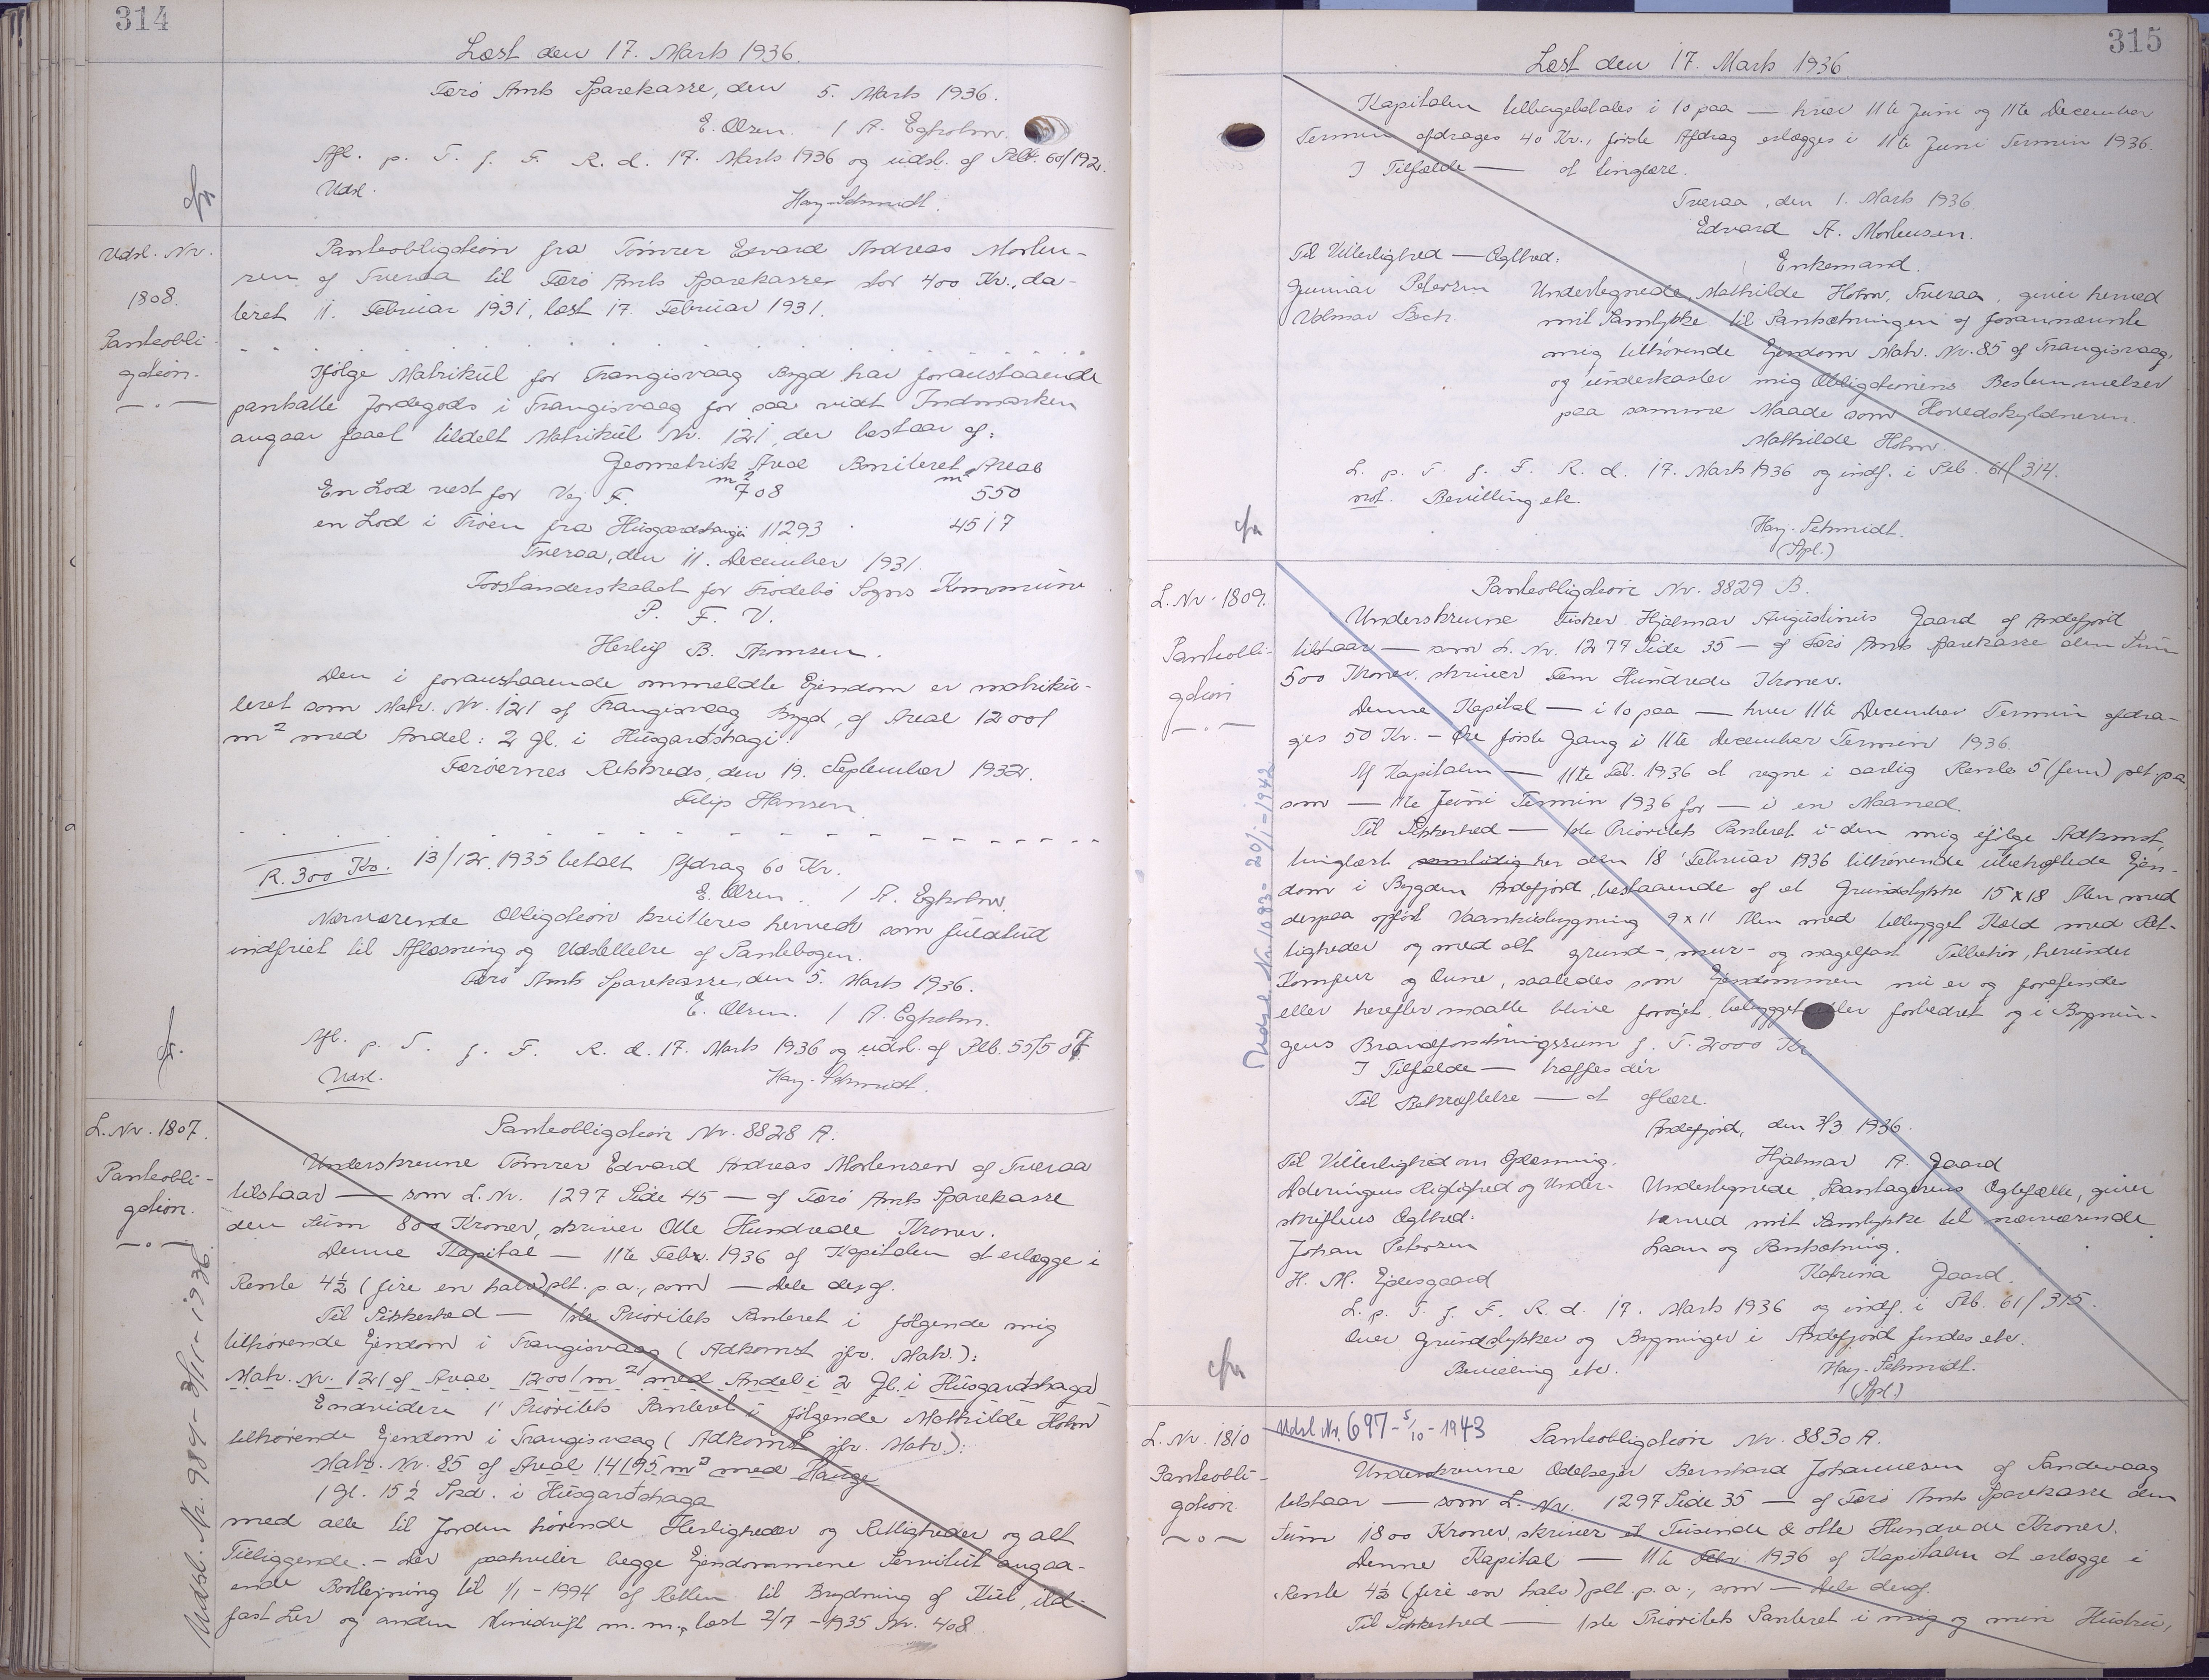 314
Læst den 17. Marts 1936.
Færø Amts Sparekasse, den 5. Marts 1936.
E. Olsen. / A. Egholm.
Afl. p. T. f. F. R. d. 17. Marts 1936 og udsl. af Pltb. 60/192.
Udsl.
Hary-Schmidt.
Udsl. Nr.
1808.
Panteobli-
gation.
Panteobligation fra Tømrer Edvard Andreas Morten-
sen af Tveraa til Færø Amts Sparekasse stor 400 Kr., da-
teret 11. Februar 1931, læst 17. Februar 1931.
Ifølge Matrikul for Trangisvaag Bygd har foranstaaende
pantsatte Jordegods i Trangisvaag for saa vidt Indmarken
angaar faaet tildelt Matrikul Nr. 121, der bestaar af:
Geometrisk Areal Boniteret Areal
m2 m2
En Lod vest for Vej F. 708 550
en Lod i Trøen fra Húsgardshaugi 11293 4517
Tveraa, den 11. December 1931.
Forstanderskabet for Frodebø Sogns Kommune
P. F. V.
Herluf B. Thomsen.
Den i foranstaaende ommeldte Ejendom er matriku-
leret som Matr. Nr. 121 af Trangisvaag Bygd, af Areal 12001
m2 med Andel: 2 Gl. i Húsgarðshagi.
Færøernes Retskreds, den 19. September 1932.
Filip Hansen
R. 300 Kr. 13/12 1935 betalt Afdrag 60 Kr.
E. Olsen. / A. Egholm.
Nærværende Obligation kvitteres herved som fuldtud
indfriet til Aflæsning og Udslettelse af Pantebogen.
Færø Amts Sparekasse, den 5. Marts 1936.
E. Olsen. / A. Egholm.
Afl. p. T. f. F. R. d. 17. Marts 1936 og udsl. af Ptb. 55/507.
Udsl.
Hary-Schmidt.
L. Nr. 1807.
Panteobli-
gation.
Udsl. Nr. 984 - 3/11 - 1936.
Panteobligation Nr. 8828 A.
Underskrevne Tømrer Edvard Andreas Mortensen af Tveraa
tilstaar — som L. Nr. 1297 Side 45 — af Færø Amts Sparekasse
den Sum 800 Kroner, skriver Otte Hundrede Kroner.
Denne Kapital — 11te Febr. 1936 af Kapitalen at erlægge i
Rente 4½ (fire en halv) pCt. p.a., som — Dele deraf.
Til Sikkerhed — 1ste Prioritets Panteret i følgende mig
tilhørende Ejendom i Trangisvaag (Adkomst jfr. Matr.):
Matr. Nr. 121 af Areal 12001 m2 med Andel i 2 Gl. i Húsgarðshaga
Endvidere 1' Prioritets Panteret i følgende Mathilde Holm
tilhørende Ejendom i Trangisvaag (Adkomst jfr. Matr.):
Matr. Nr. 85 af Areal 14195 m2 med Hauge
1 Gl. 15½ Skd. i Húsgarðshaga
med alle til Jorden hørende Herligheder og Rettigheder og alt
Tilliggende. - Der paahviler begge Ejendommene Servitut angaa-
ende Bortlejning til 1/1 - 1994 af Retten til Brydning af Kul, ild-
fast Ler og anden Minedrift m. m., læst 2/7 - 1935 Nr. 408.
315
Læst den 17. Marts 1936
Kapitalen tilbagebetales i 10 paa — hver 11te Juni og 11te December
Termin afdrages 40 Kr., første Afdrag erlægges i 11te Juni Termin 1936.
I Tilfælde — at tinglære.
Tveraa, den 1. Marts 1936.
Edvard A. Mortensen.
Enkemand.
Til Vitterlighed — Ogthed:
Gunnar Petersen
Volmar Bech
Undertegnede, Mathilde Holm, Tveraa, giver herved
mit Samtykke til Pantsætningen af forannævnte
mig tilhørende Ejendom Matr. Nr. 85 af Trangisvaag,
og underkaster mig Obligationens Bestemmelser
paa samme Maade som Hovedskyldneren.
Mathilde Holm.
L. p. T. f. F. R. d. 17. Marts 1936 og indf. i Ptb. 61/314.
not. Bevilling etc.
Hary-Schmidt.
(Spl.)
L. Nr. 1809.
Panteobli-
gation
Udsl. Nr. 1083 - 20/1 - 1942
Panteobligation Nr. 8829 B.
Underskrevne Fisker Hjalmar Augustinus Gaard af Andefjord
tilstaar — som L. Nr. 1277 Side 35 — af Færø Amts Sparekasse den Sum
500 Kroner, skriver Fem Hundrede Kroner.
Denne Kapital — i 10 paa — hver 11te December Termin afdra-
ges 50 Kr. - Øre første Gang i 11te December Termin 1936.
Af Kapitalen — 11te Feb. 1936 at regne i aarlig Rente 5 (fem) pCt. p.a.
som — 11te Juni Termin 1936 for — i en Maaned.
Til Sikkerhed — 1ste Prioritets Panteret i den mig ifølge Adkomst,
tinglæst samtidig her den 18' Februar 1936 tilhørende ubehæftede Ejen-
dom i Bygden Andefjord, bestaaende af et Grundstykke 15 x 18 Alen med
derpaa opført Vaaningsbygning 9 x 11 Alen med tilbygget Kæld med Ret-
tigheder og med alt grund-, mur- og nagelfast Tilbehør, herunder
Komfur og Ovne, saaledes som Ejendommen nu er og forefindes
eller herefter maatte blive forøget, bebygget eller forbedret og i Bygnin-
gens Brandforsikringssum f. T. 2000 Kr.
I Tilfælde — træffes dér
Til Bekræftelse — at aflære.
Andefjord, den 3/3 1936.
Hjalmar A. Gaard
Til Vitterlighed om Oplæsning,
Dateringens Rigtighed og Under-
skriftens Ogthed:
Johan Petersen
H. M. Ejdesgaard
Undertegnede, Laantagerens Ægtefælle, giver
herved mit Samtykke til nærværende
Laan og Pantsætning.
Katrina Gaard.
L. p. T. f. F. R. d. 17. Marts 1936 og indf. i Ptb. 61/315.
Over Grundstykker og Bygninger i Andefjord findes etc.
Bevilling etc.
Hary-Schmidt.
(Spl.)
L. Nr. 1810
Panteobli-
gation.
Udsl. Nr. 697 - 5/10 - 1943
Panteobligation Nr. 8830 A.
Underskrevne Odelsejer Bernhard Johannesen af Sandevaag
tilstaar — som L. Nr. 1297 Side 35 — af Færø Amts Sparekasse den
Sum 1800 Kroner, skriver et Tusinde & otte Hundrede Kroner.
Denne Kapital — 11te Febr 1936 af Kapitalen at erlægge i
Rente 4½ (fire en halv) pCt. p.a., som — Dele deraf.
Til Sikkerhed — 1ste Prioritets Panteret i mig og min Hustru,